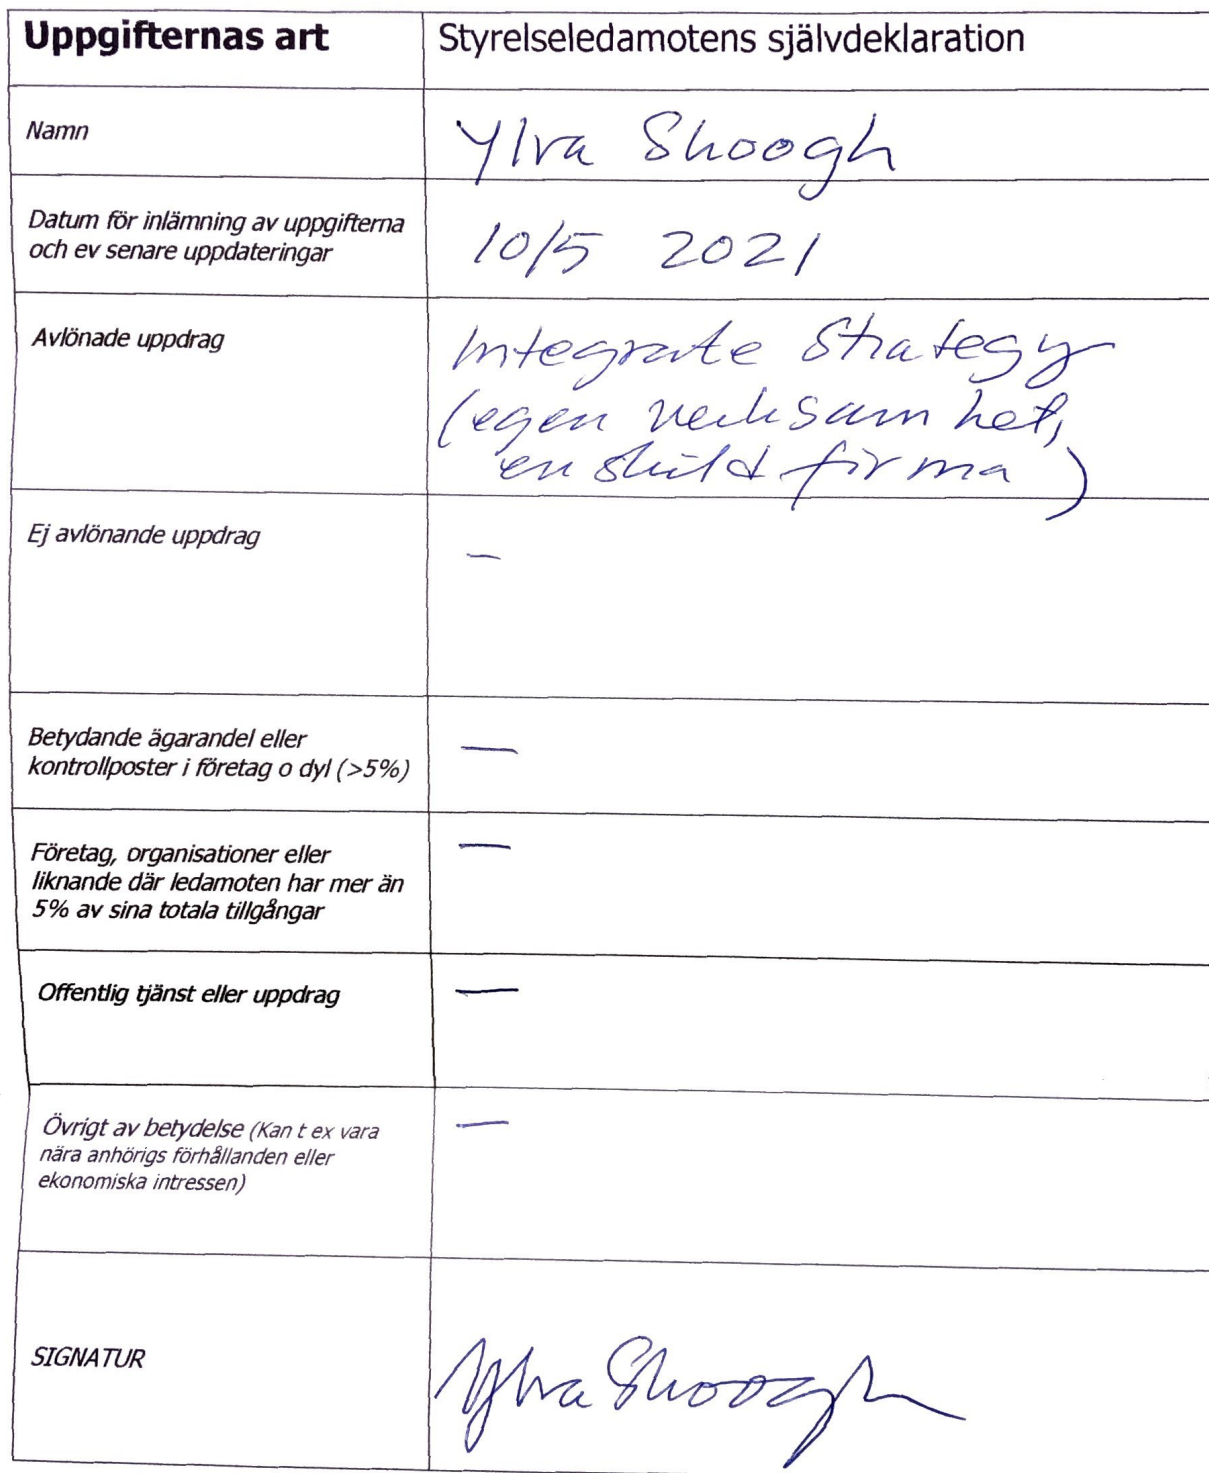 Uppgifternas art
Styrelseledamotens självdeklaration
Namn
Ylva Skoogh
Datum för inlämning av uppgifterna
och ev senare uppdateringar
10/5 2021
Avlönade uppdrag
Integrate Strategy
(egen verksamhet,
enskild firma)
Ej avlönande uppdrag
-
Betydande ägarandel eller
kontrollposter i företag o dyl (>5%)
—
Företag, organisationer eller
liknande där ledamoten har mer än
5% av sina totala tillgångar
—
Offentlig tjänst eller uppdrag
—
Övrigt av betydelse (Kan t ex vara
nära anhörigs förhållanden eller
ekonomiska intressen)
—
SIGNATUR
Ylva Skoogh